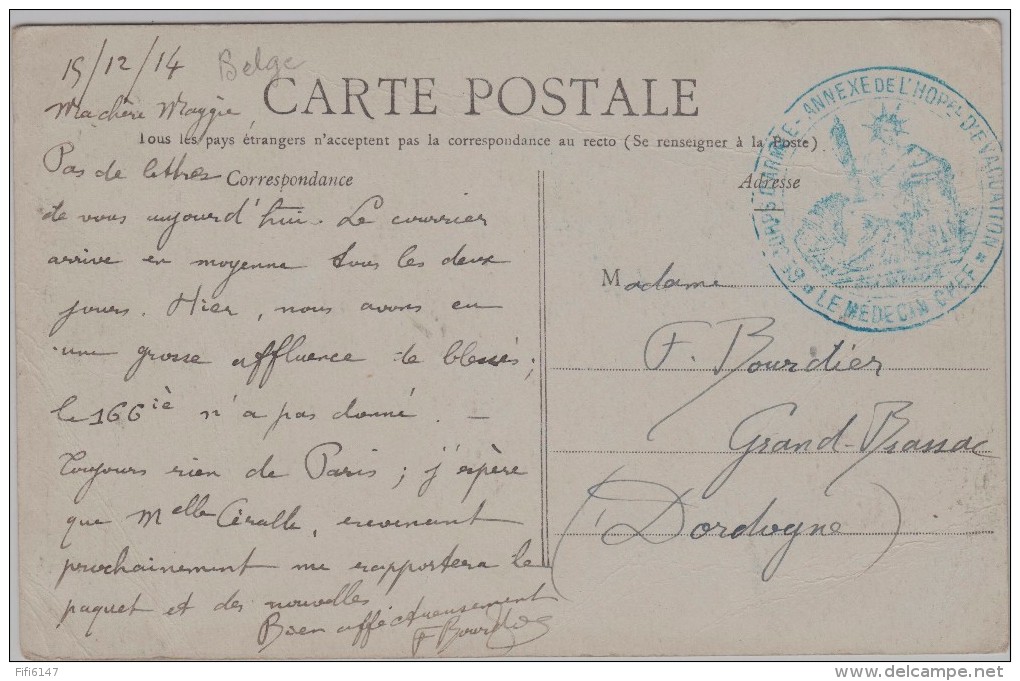 15/12/14
Belge
CARTE POSTALE
Ma chère Maggie
Tous les pays étrangers n'acceptent pas la correspondance au recto (Se renseigner à la Poste)
Pas de lettres
Correspondance
de vous aujourd'hui. Le courrier
arrive en moyenne tous les deux
jours. Hier, nous avons eu
une grosse affluence de blessés;
le 166iè n'a pas donné. —
Toujours rien de Paris; j'espère
que Melle Céralle, revenant
prochainement me rapportera le
paquet et des nouvelles
Bien affectueusement
F Bourdier
Adresse
CORPS D'ARMÉE - ANNEXE DE L'HOPal D'EVACUATION
* LE MEDECIN CHEF *
Madame
F. Bourdier
Grand-Brassac
(Dordogne)
Fifi6147
delcampe.net